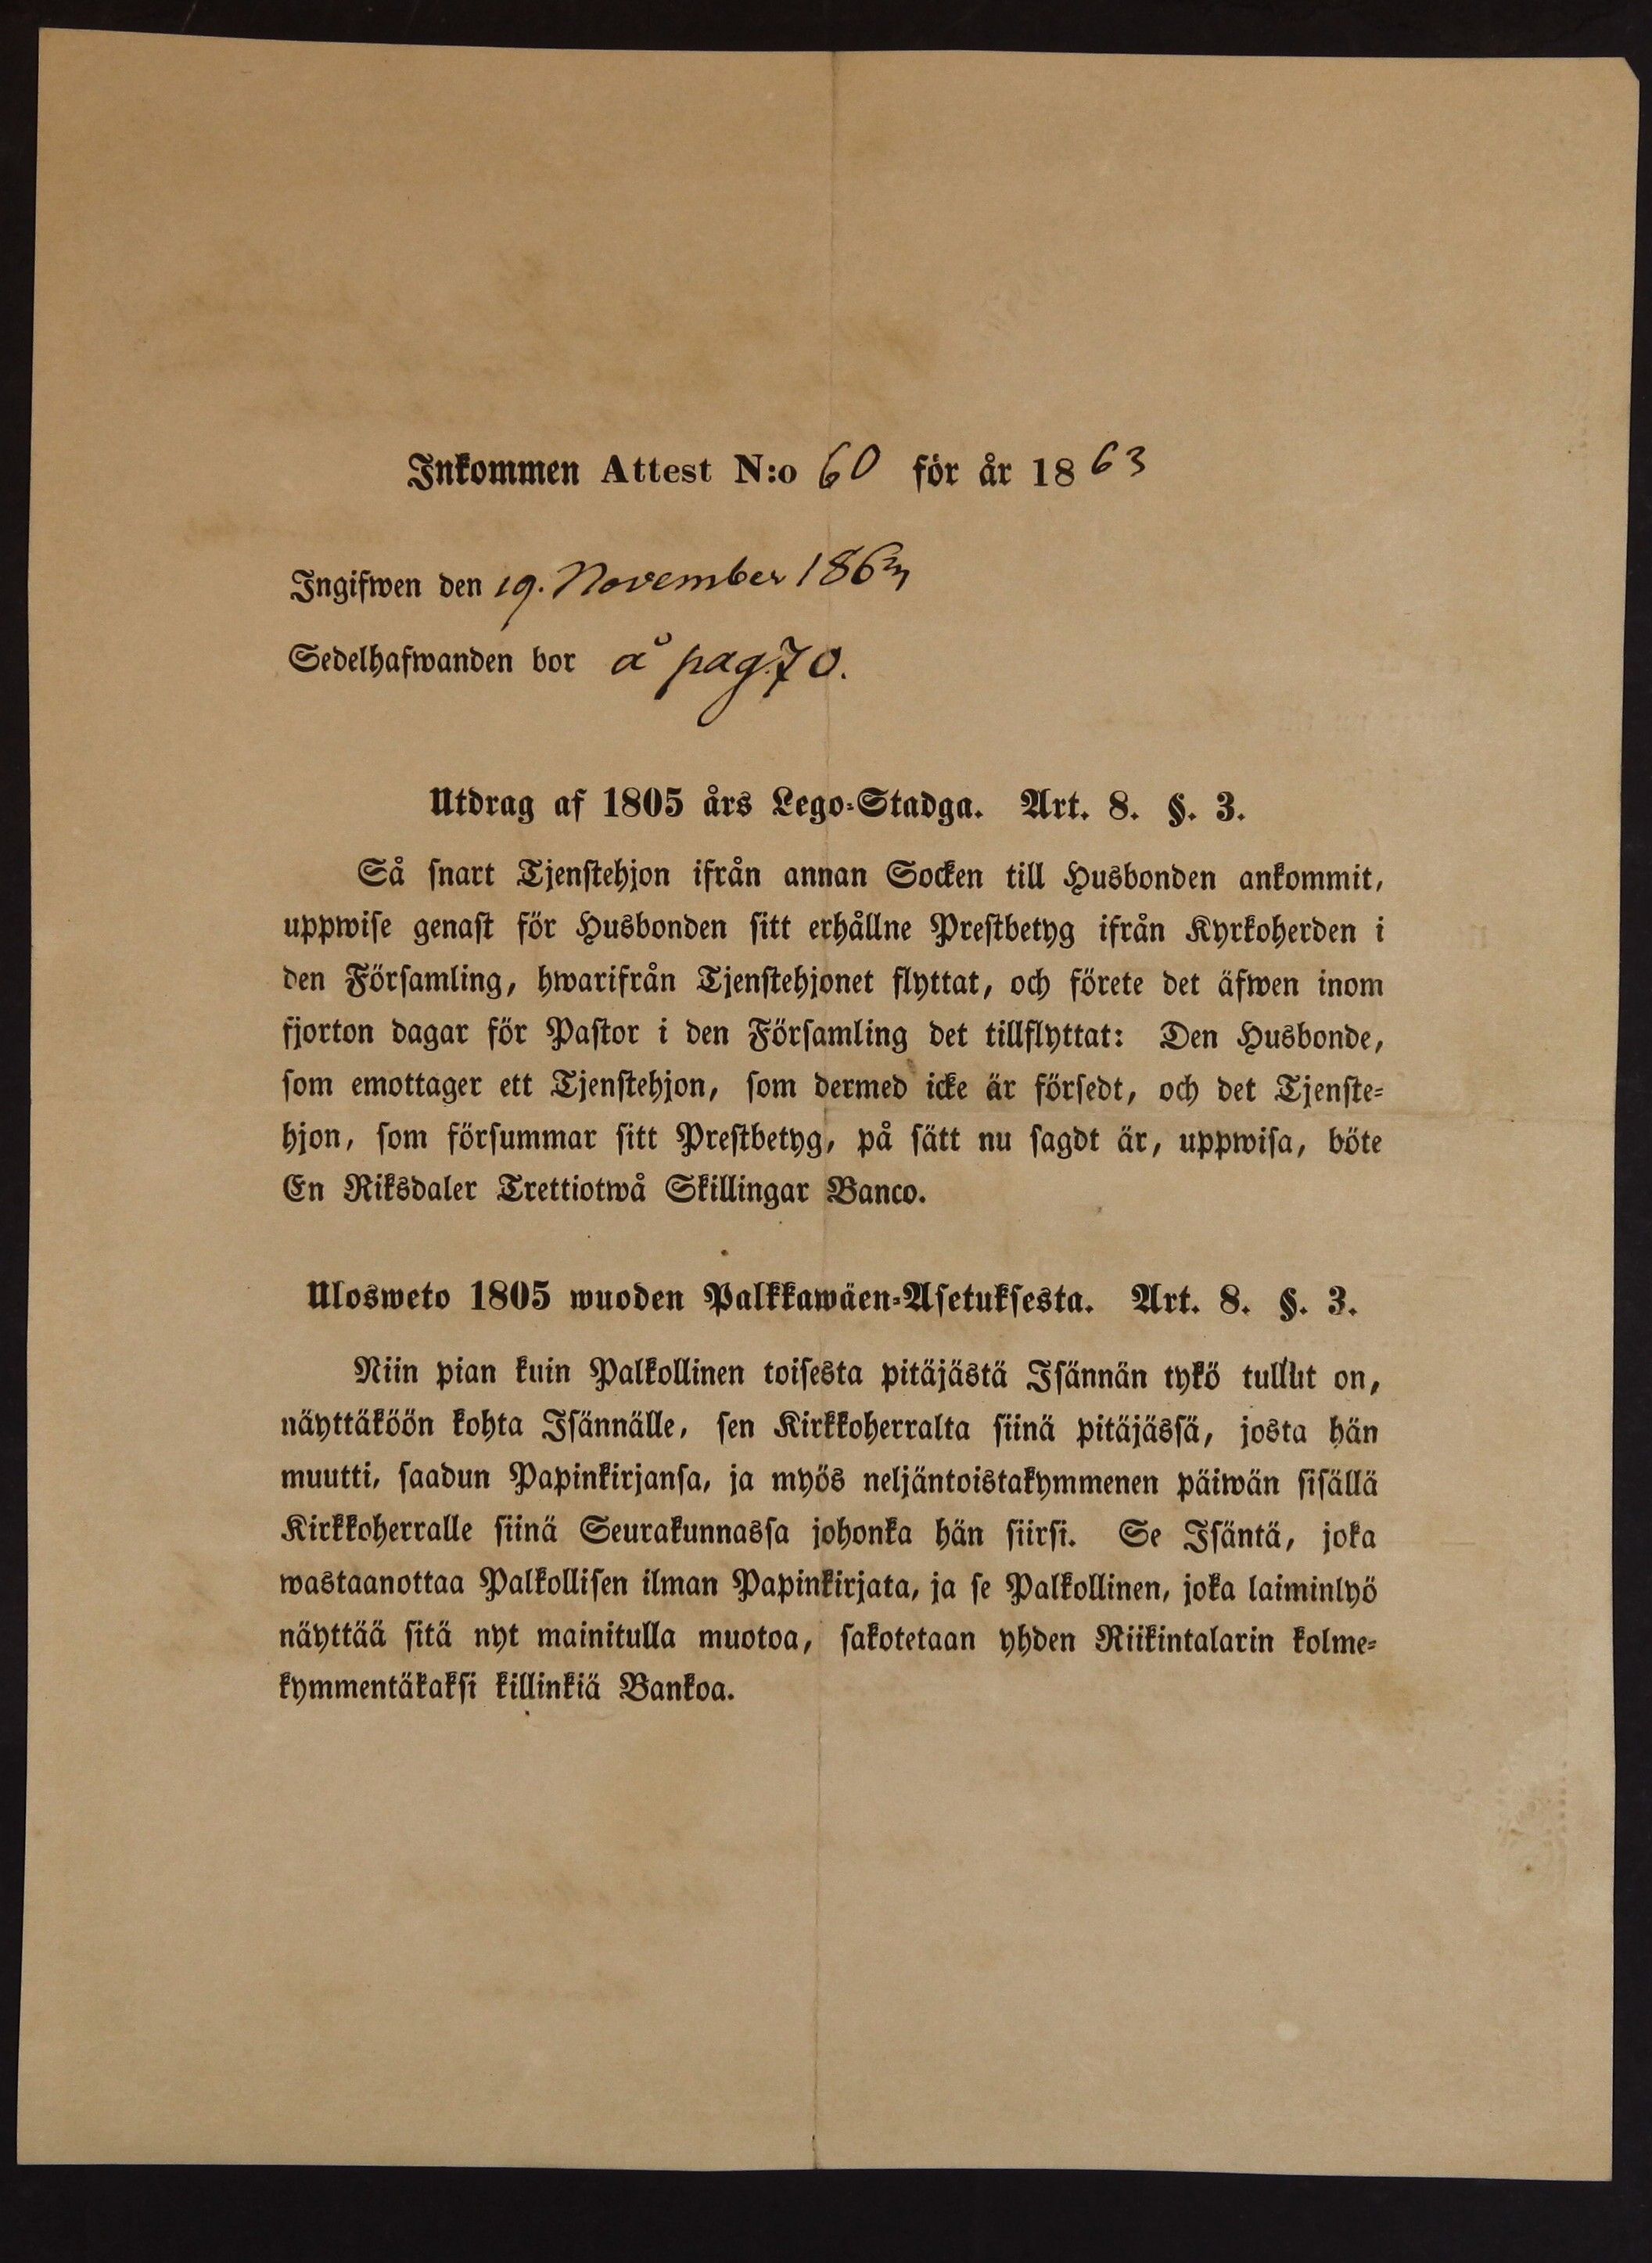 Inkommen Attest N:o 60 för år 1863
Ingifwen den 19. November 1863
Sedelhafwanden bor å pag. 70.
Utdrag af 1805 års Lego-Stadga. Art. 8. §. 3.
Så snart Tjenstehjon ifrån annan Socken till Husbonden ankommit,
uppwise genast för Husbonden sitt erhållne Prestbetyg ifrån Kyrkoherden i
den Församling, hwarifrån Tjenstehjonet flyttat, och förete det äfwen inom
fjorton dagar för Pastor i den Församling det tillflyttat: Den Husbonde,
som emottager ett Tjenstehjon, som dermed icke är försedt, och det Tjenste-
hjon, som försummar sitt Prestbetyg, på sätt nu sagdt är, uppwisa, böte
En Riksdaler Trettiotwå Skillingar Banco.
Ulosweto 1805 wuoden Palkkawäen-Asetuksesta. Art. 8. §. 3.
Niin pian kuin Palkollinen toisesta pitäjästä Isännän tykö tullut on,
näyttäköön kohta Isännälle, sen Kirkkoherralta siinä pitäjässä, josta hän
muutti, saadun Papinkirjansa, ja myös neljäntoistakymmenen päiwän sisällä
Kirkkoherralle siinä Seurakunnassa johonka hän siirsi. Se Isäntä, joka
wastaanottaa Palkollisen ilman Papinkirjata, ja se Palkollinen, joka laiminlyö
näyttää sitä nyt mainitulla muotoa, sakotetaan yhden Riikintalarin kolme-
kymmentäkaksi killinkiä Bankoa.